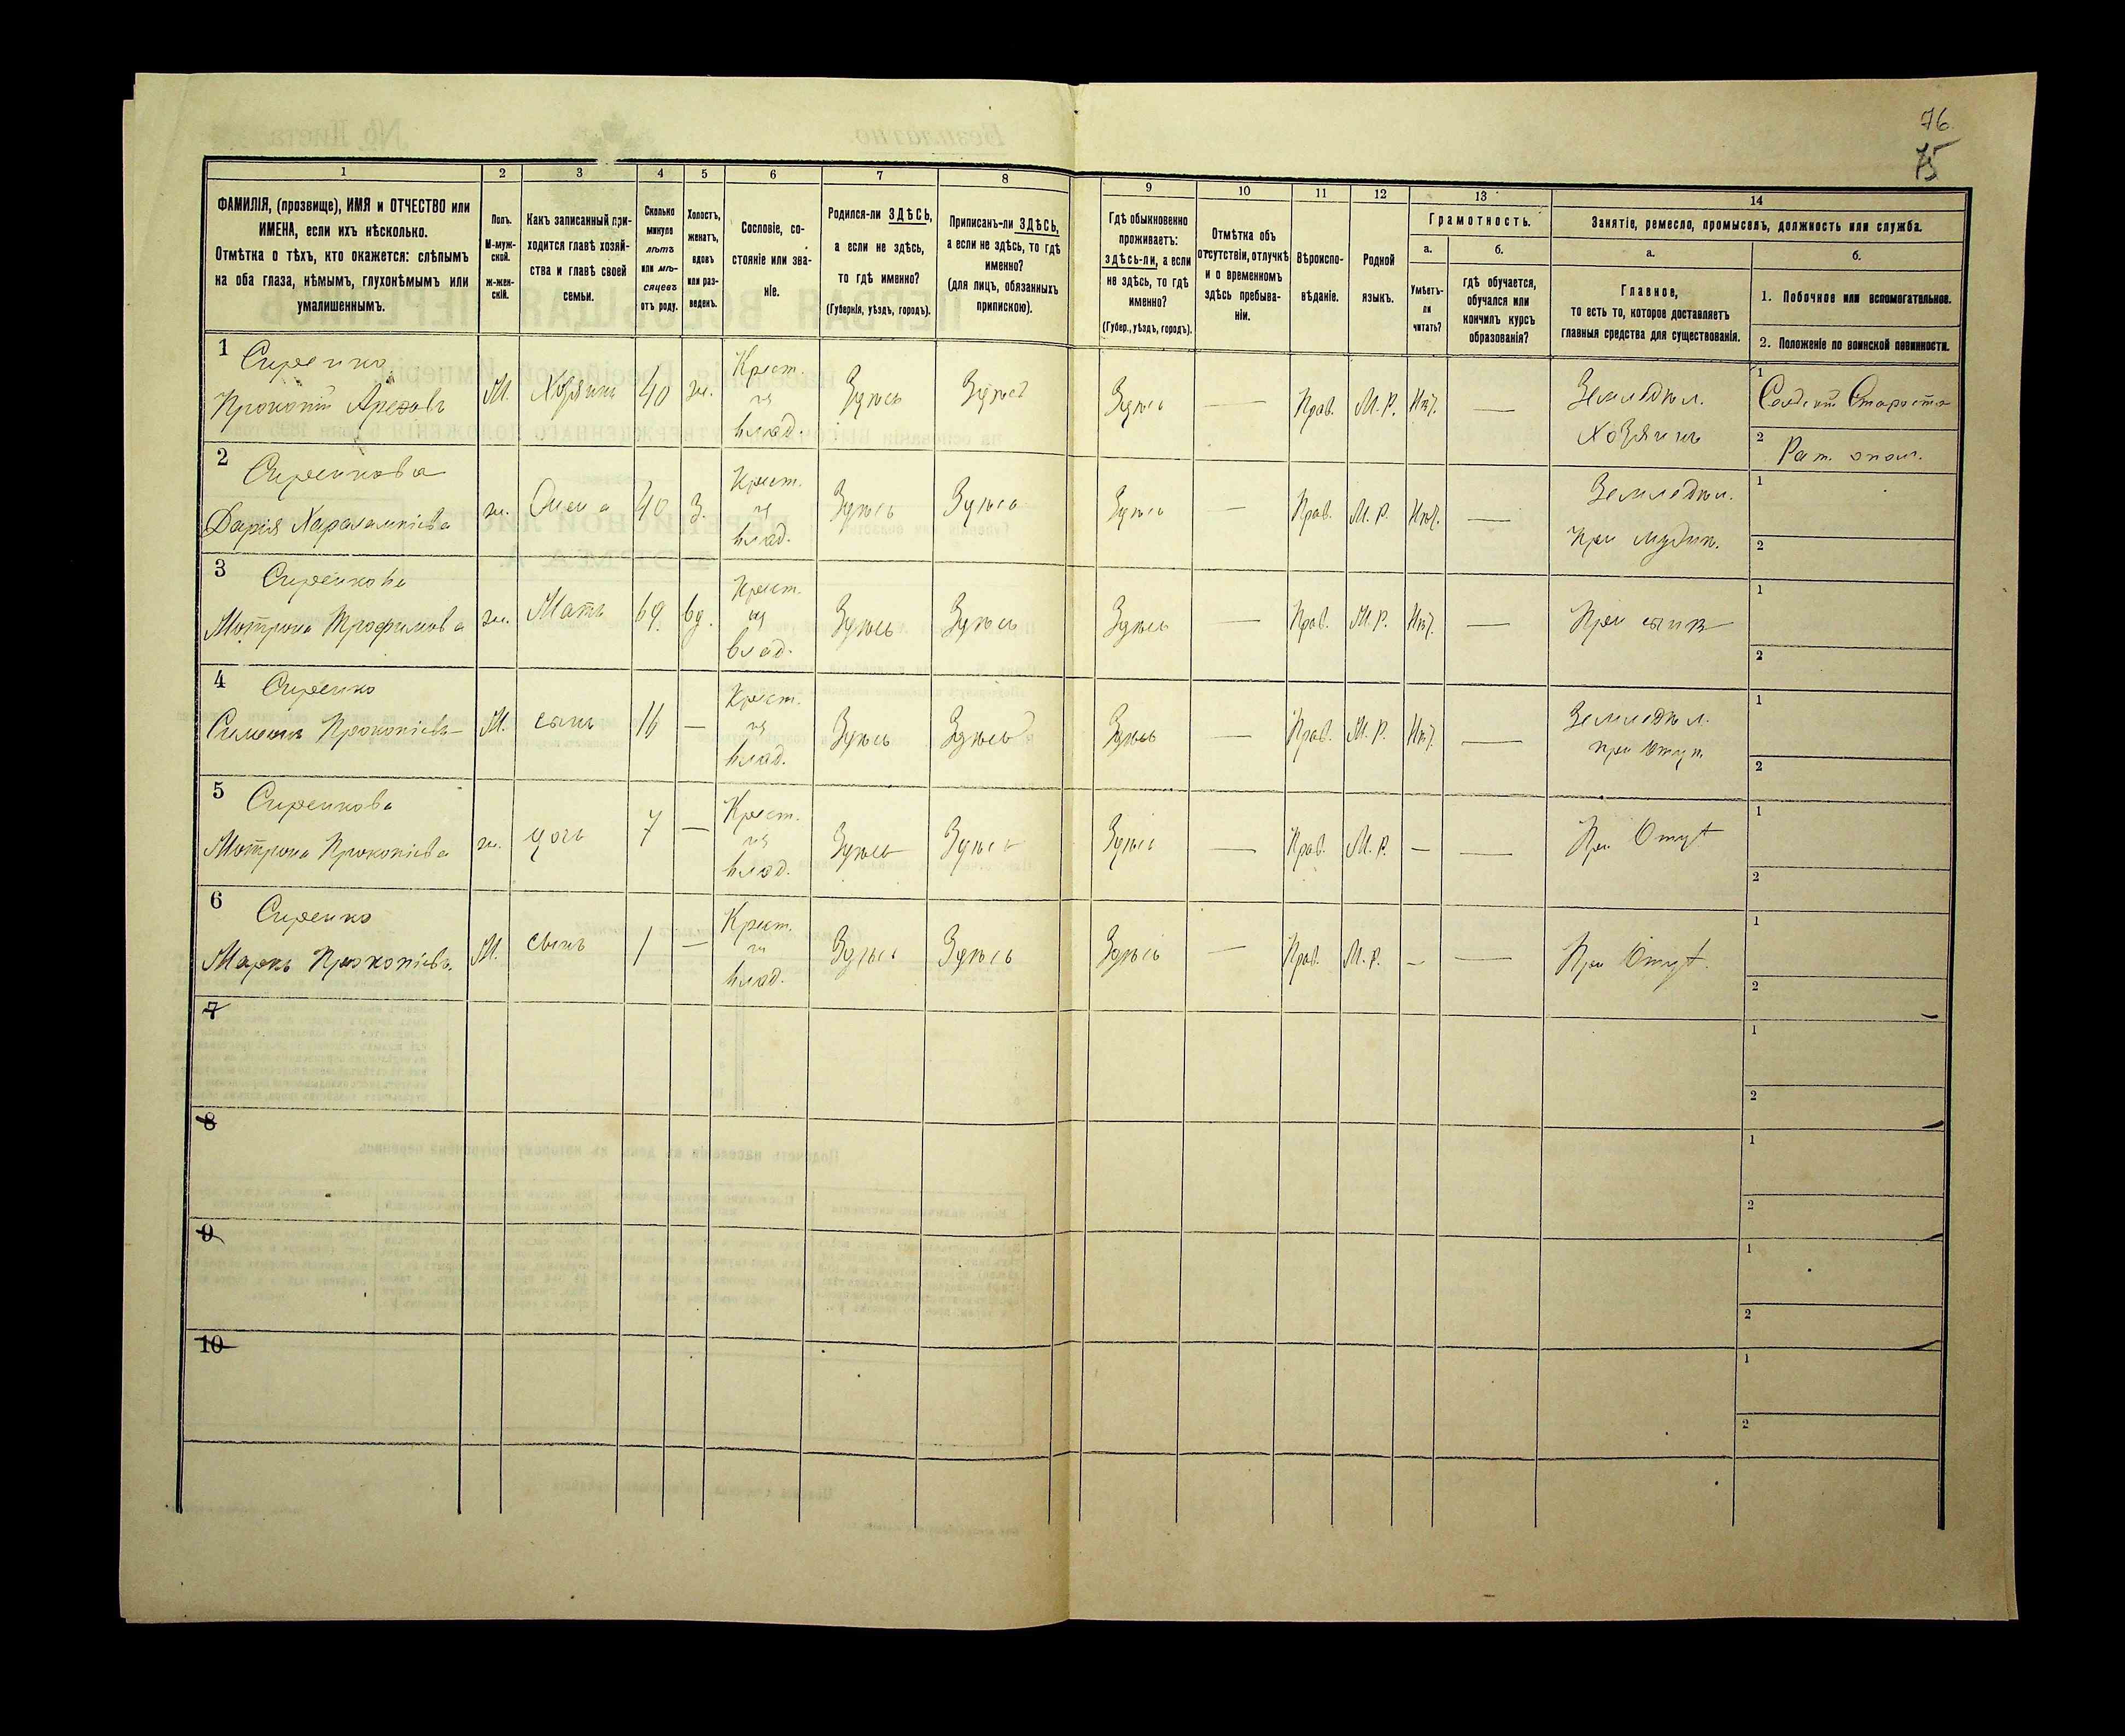 76
75
1
2
3
4
5
6
7
8
9
10
11
12
13
14
ФАМИЛІЯ, (прозвище), ИМЯ и ОТЧЕСТВО или
ИМЕНА, если ихъ нѣсколько.
Отмѣтка о тѣхъ, кто окажется: слѣпымъ
на оба глаза, нѣмымъ, глухонѣмымъ или
умалишеннымъ.
Полъ.
М-муж-
ской.
ж-жен-
скій.
Какъ записанный при-
ходится главѣ хозяй-
ства и главѣ своей
семьи.
Сколько
минуло
лѣтъ
или мѣ-
сяцевъ
отъ роду.
Холостъ,
женатъ,
вдовъ
или раз-
веденъ.
Сословіе, со-
стояніе или зва-
ніе.
Родился-ли ЗДѢСЬ,
а если не здѣсь,
то гдѣ именно?
(Губернія, уѣздъ, городъ).
Приписанъ-ли ЗДѢСЬ,
а если не здѣсь, то гдѣ
именно?
(для лицъ, обязанныхъ
припискою).
Гдѣ обыкновенно
проживаетъ:
здѣсь-ли, а если
не здѣсь, то гдѣ
именно?
(Губер., уѣздъ, городъ).
Отмѣтка объ
отсутствіи, отлучкѣ
и о временномъ
здѣсь пребыва-
ніи.
Вѣроиспо-
вѣданіе.
Родной
языкъ.
Грамотность.
а.
Умѣетъ-
ли
читать?
б.
гдѣ обучается,
обучался или
кончилъ курсъ
образованія?
Занятіе, ремесло, промыселъ, должность или служба.
а.
Главное,
то есть то, которое доставляетъ
главныя средства для существованія.
б.
1. Побочное или вспомогательное.
2. Положеніе по воинской повинности.
1
Сиренко
Прокопій
М.
Хозяинъ
40
ж.
Крест.
изъ
влад.
Здѣсь
Здѣсь
Здѣсь
—
Прав.
М. Р.
Нѣт.
—
Земледѣл.
Хозяинъ
1
Староста
2
Рат. опол.
2
Сиренкова
Дарія Харалампіева
ж.
Жена
40
З.
Крест.
изъ
влад.
Здѣсь
Здѣсь
Здѣсь
—
Прав.
М. Р.
Нѣт.
—
Земледѣл.
При мужѣ.
1
2
3
Сиренкова
Мотрона Трофимова
ж.
Мать
69
вд.
Крест.
изъ
влад.
Здѣсь
Здѣсь
Здѣсь
—
Прав.
М. Р.
Нѣт.
—
При сынѣ
1
2
4
Сиренко
Симонъ Прокопіевъ
М.
сынъ
16
—
Крест.
изъ
влад.
Здѣсь
Здѣсь
Здѣсь
—
Прав.
М. Р.
Нѣт.
—
Земледѣл.
при Отцѣ
1
2
5
Сиренкова
Мотрона Прокопіева
ж.
дочь
7
—
Крест.
изъ
влад.
Здѣсь
Здѣсь
Здѣсь
—
Прав.
М. Р.
—
—
При Отцѣ
1
2
6
Сиренко
Маркъ Прокопіевъ.
М.
сынъ
1
—
Крест.
изъ
влад.
Здѣсь
Здѣсь
Здѣсь
—
Прав.
М. Р.
—
—
При Отцѣ.
1
2
7
1
2
8
1
2
9
1
2
10
1
2